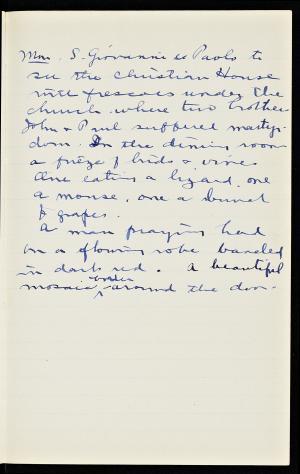 Mon. S. Giovanni e Paolo to
see the Christian House
with frescoes under the
church where two brothers
John & Paul suffered martyr-
dom. In the dining room
a frieze of birds & vines
One eating a lizard, one
a mouse, one a bunch
of grapes.
A man praying had
on a flowing robe banded
in dark red. A beautiful
border
mosaic, around the door-